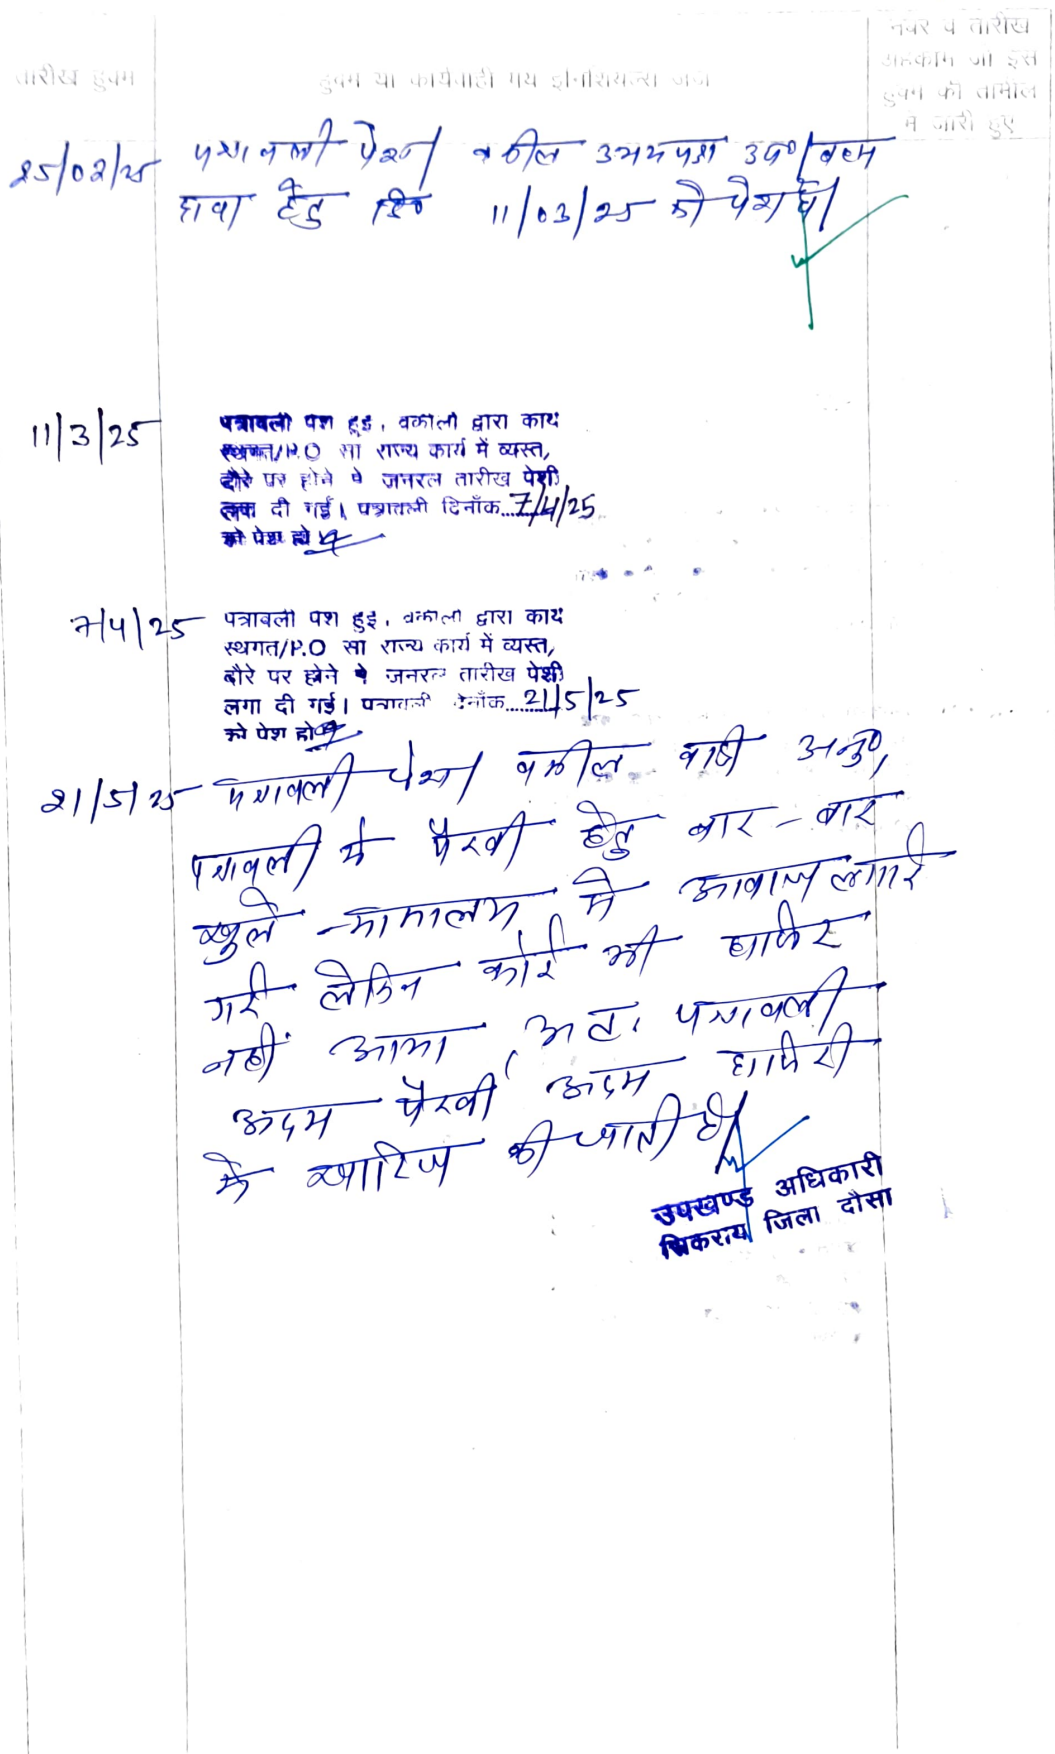 तारीख हुक्म
हुक्म या कार्यवाही मय इनिशियल्स जज
नंबर व तारीख
अहकाम जो इस
हुक्म की तामील
में जारी हुए
25/02/25 पत्रावली पेश। वकील उभयपक्ष उप०। बहस
दावा हेतु दि० 11/03/25 को पेश हो।
11/3/25 पत्रावली पेश हुई, वकीलों द्वारा कार्य
स्थगत/P.O सा राज्य कार्य में व्यस्त,
दौरे पर होने से जनरल तारीख पेशी
लगा दी गई। पत्रावली दिनाँक...7/4/25
को पेश हो
7/4/25 पत्रावली पेश हुई, वकीलों द्वारा कार्य
स्थगत/P.O सा राज्य कार्य में व्यस्त,
दौरे पर होने से जनरल तारीख पेशी
लगा दी गई। पत्रावली दिनाँक...21/5/25
को पेश हो
21/5/25 पत्रावली पेश। वकील वादी अनु०,
पत्रावली में पैरवी हेतु बार-बार
खुले न्यायालय में आवाज लगाई
गई लेकिन कोई भी हाजिर
नहीं आया, अतः पत्रावली
अदम पैरवी अदम हाजिरी
में खारिज की जाती है।
उपखण्ड अधिकारी
सिकराय जिला दौसा